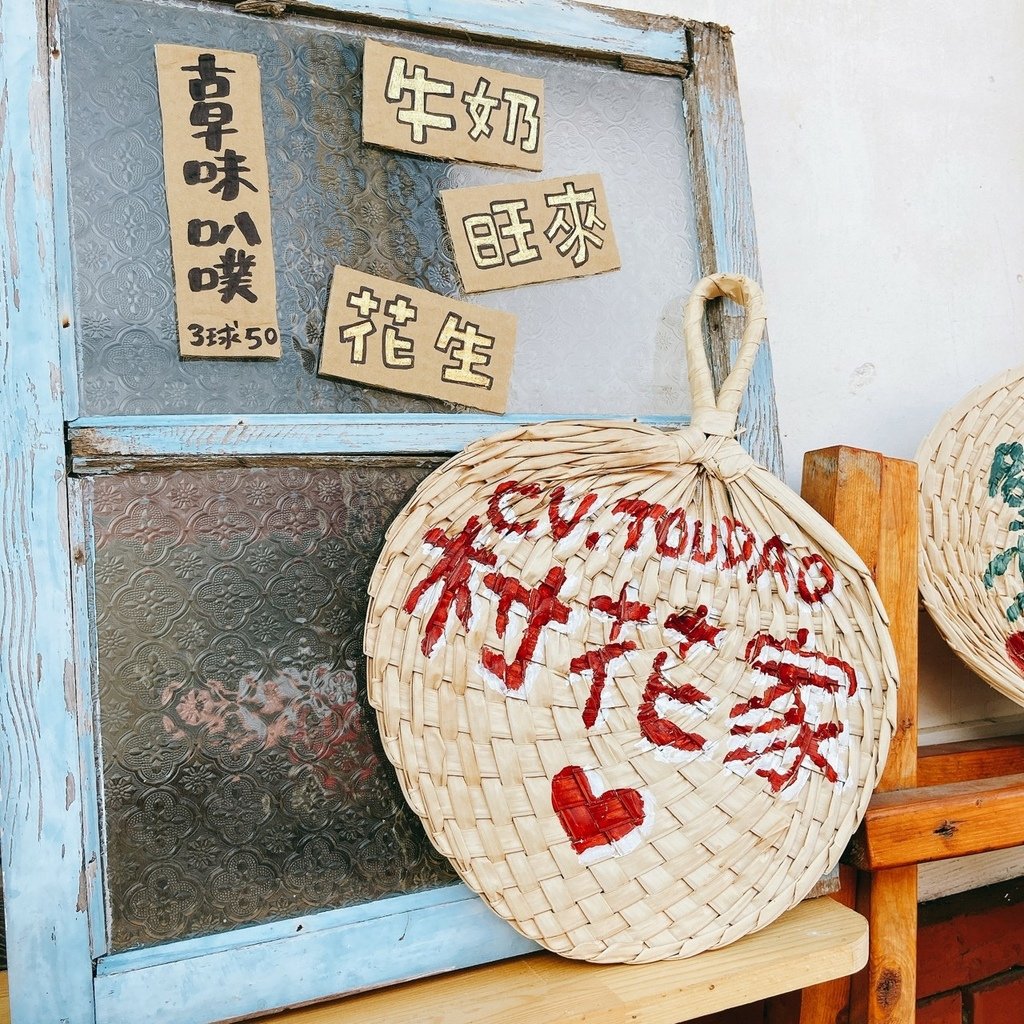 古早味
叭噗
3球50
牛奶
旺來
花生
CU.TOUDAO
村花家